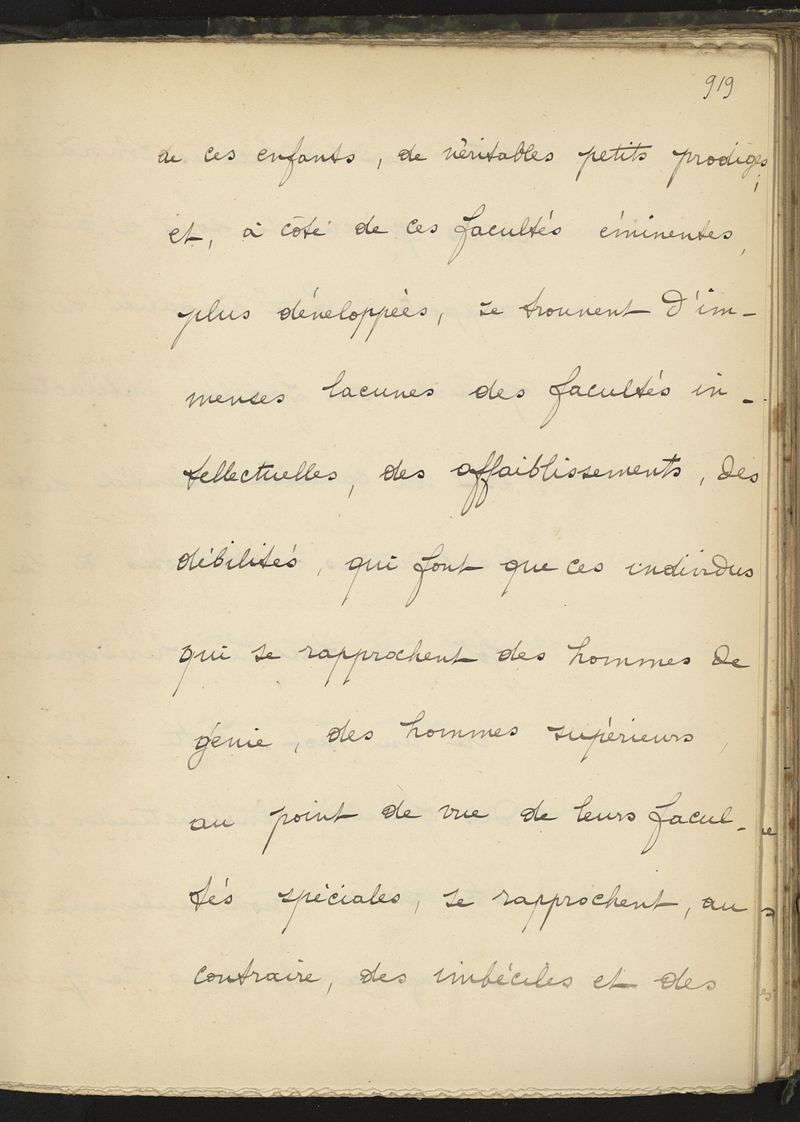 919
de ces enfants, de véritables petits prodiges ;
et, à côté de ces facultés éminentes,
plus développées, se trouvent d'im-
menses lacunes des facultés in-
tellectuelles, des affaiblissements, des
débilités, qui font que ces individus
qui se rapprochent des hommes de
génie, des hommes supérieurs,
au point de vue de leurs facul-
tés spéciales, se rapprochent, au
contraire, des imbéciles et des